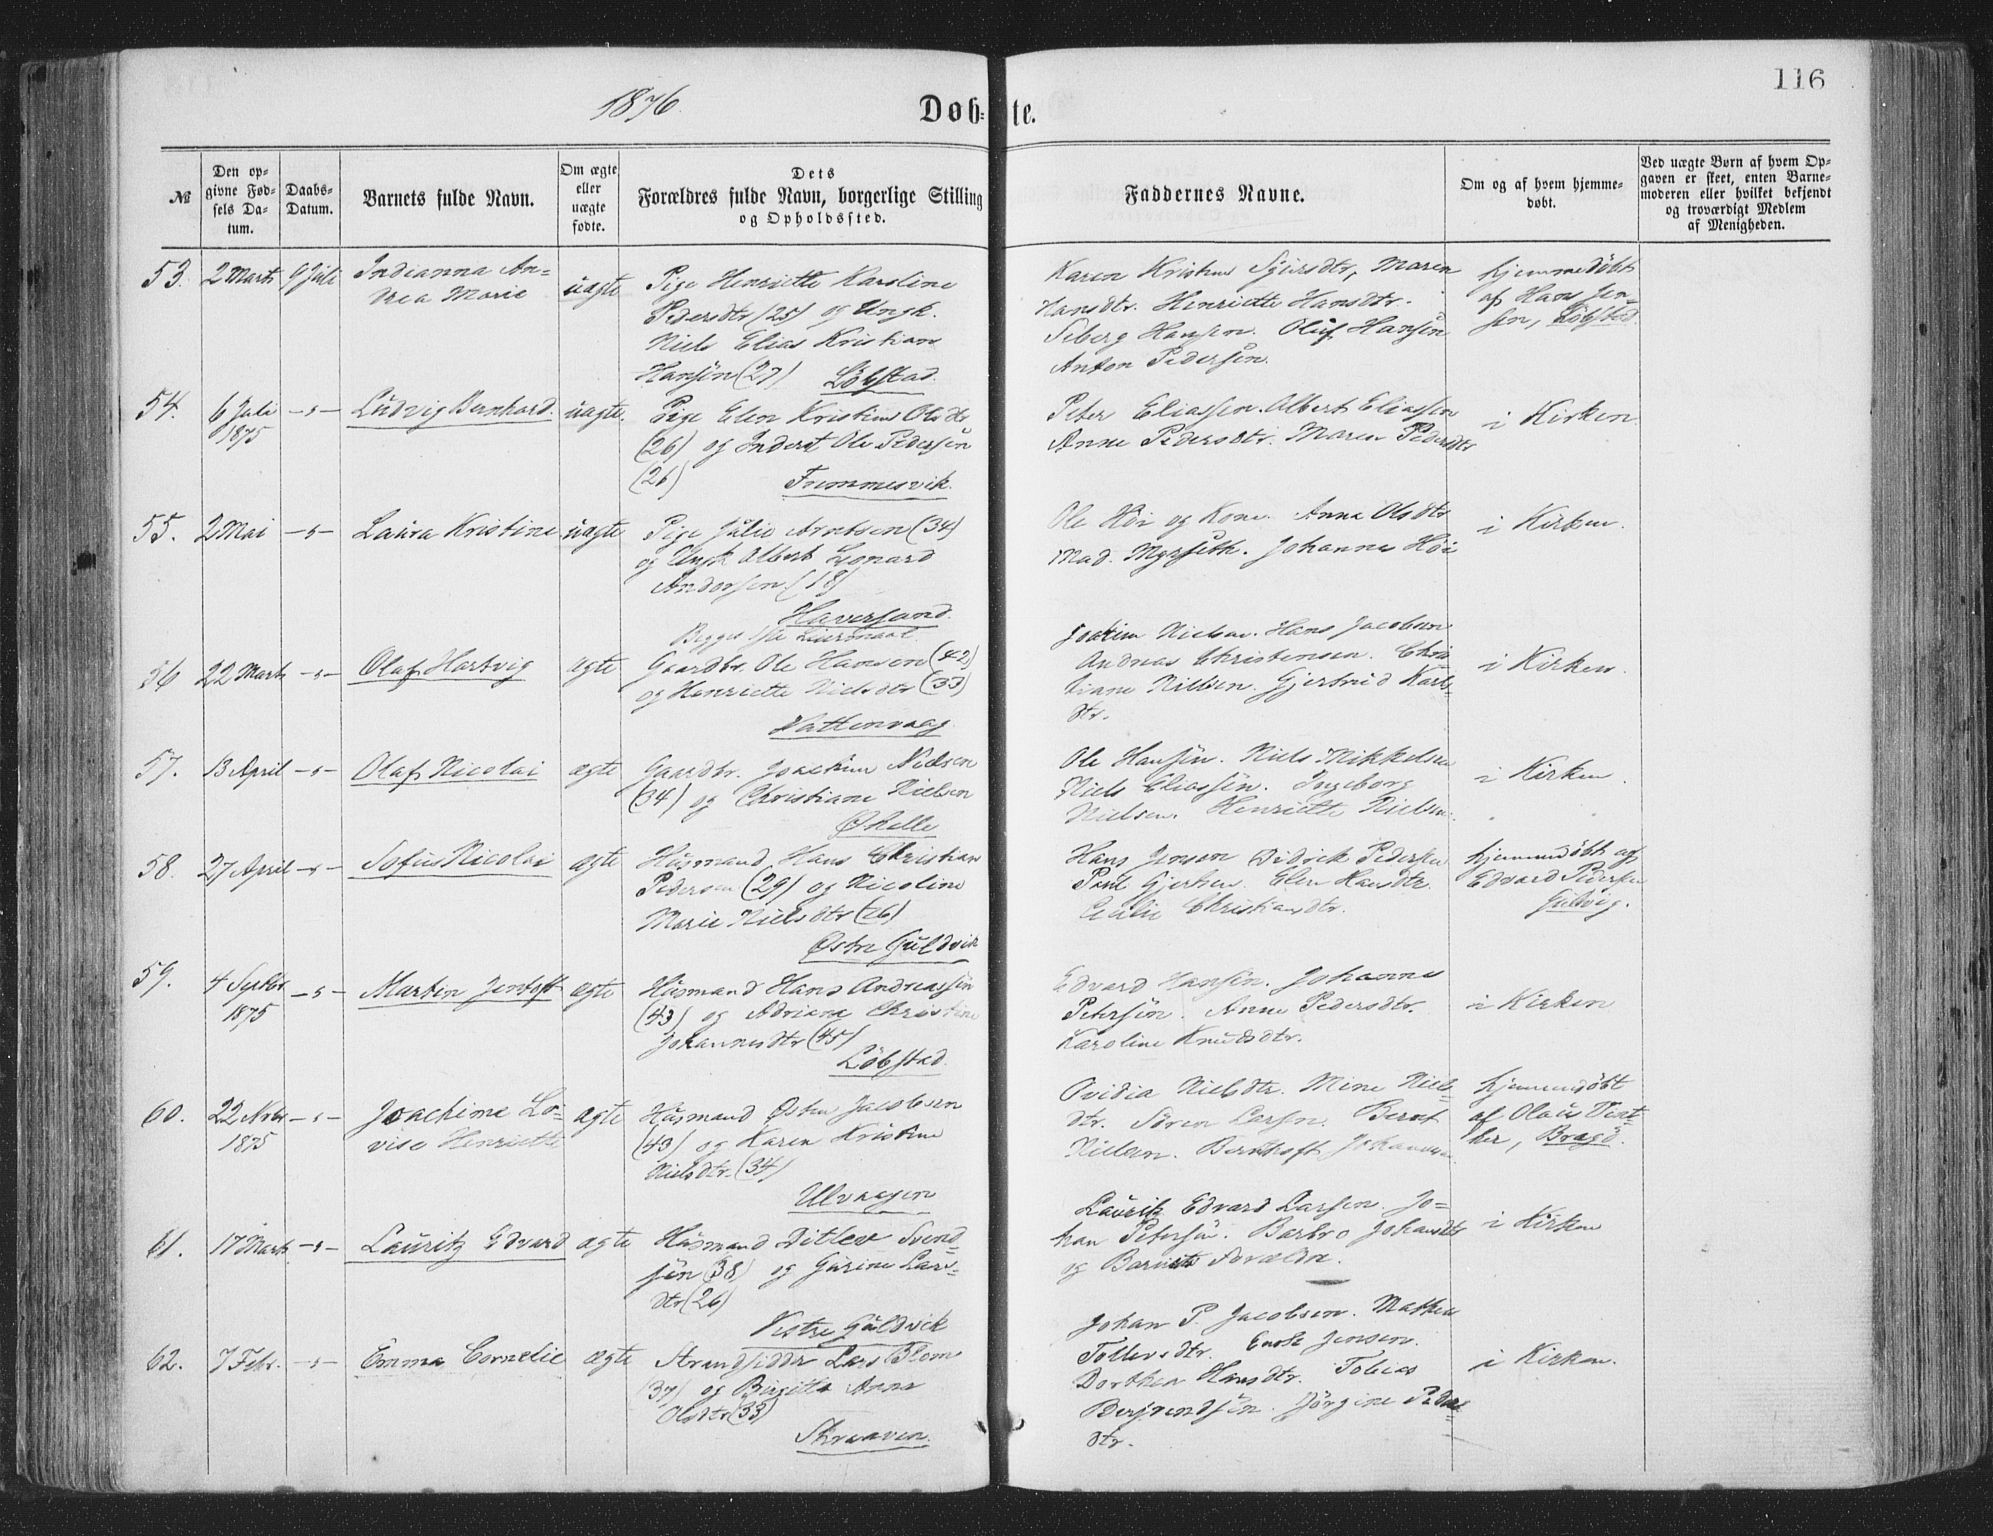 116
1876
Döb-te.
№
Den op-
givne Fød-
sels Da-
tum.
Daabs-
Datum.
Barnets fulde Navn.
Om ægte
eller
uægte
fødte.
Dets
Forældres fulde Navn, borgerlige Stilling
og Opholdssted.
Faddernes Navne.
Om og af hvem hjemme-
døbt.
Ved uægte Børn af hvem Op-
gaven er skeet, enten Barne-
moderen eller hvilket bekjendt
og troværdigt Medlem
af Menigheden.
53. 2 Marts 9 Juli Indianna An-
drea Marie
uægte
Pige Henriette Karoline
Pedersdtr (25) og Ungk.
Niels Elias Kristian
Hansen (27) Löbstad.
Karen Kristine, Maren
Hansdtr. Henriette Hansdtr.
Seberg Hansen. Oluf Hansen
Anton Pedersen.
hjemmedøbt
af Hans Jen-
sen, Löbstad.
54. 6 Juli -"- Ludvig Bernhard. uægte.
1875
Pige Elen Kristine Olsdtr
(26) og Inderst Ole Pedersen
(26) Trommesvik.
Peter Eliassen. Albert Eliassen
Anne Pedersdtr. Maren Pedersdtr
i Kirken.
55. 2 Mai -"- Laura Kristine uægte
Pige Julie Arntsen (34)
og Ungk Albert Leonard
Andersen (18)
Haversand.
Begge fra
Ole Höi og Kone. Anna Olsdtr
Mad. Myrseth. Johannes Höi
i Kirken.
56 22 Marts -"- Olaf Hartvig ægte
Gaardbr. Ole Hansen (42)
og Henriette Nielsdtr (33)
Vattenvaag.
Joakim Nielsen. Hans Jacobsen
Andreas Christensen. Chris
tiane Nielsen. Gjertrud Karls-
dtr.
i Kirken.
57. 13 April -"- Olaf Nicolai ægte
Gaardbr. Joachim Nielsen
(34) og Christiane Nielsen
Ole Hansen. Niels Mikkelsen
Niels Eliassen. Ingeborg
Nielsen. Henriette Nielsen.
i Kirken.
58. 27 April -"- Sofus Nicolai ægte
Husmand Hans Christian
Pedersen (29) og Nicoline
Marie Nielsdtr (26)
Østre Guldvik
Hans Jensen Didrik Pedersen
Poul Elen Hansdtr.
Christiansdtr.
hjemmedøbt af
Edvard Pedersen
Gulvig.
59. 4 Septbr -"- Martin Jentoft ægte
1875
Husmand Hans Andreassen
(43) og Adriane Christine
Johannesdtr (45)
Löbstad.
Edvard Hansen. Johannes
Petersen. Anne Pedersdtr.
Karoline Knudsdtr.
i Kirken
60. 22 Novbr -"- Joachime Lo-
1875 vise Henriette
ægte
Husmand Østen Jacobsen
(43) og Karen Kristine
Nielsdtr. (34)
Ulvaagen
Ovidia Nielsdtr. Mine Niels
dtr. Sören Larsen. Bernt
Nielsen. Bernhoft Johannesen
hjemmedøbt
af Olaus Pent-
her, Bragd.
61. 17 Marts -"- Lauritz Edvard ægte
Husmand Ditlev Svend-
sen (38) og Gurine Lars-
dtr (26)
Vestre Guldvik
Lauritz Edvard Larsen. Jo-
han Petersen. Barbro Johansdtr
og Barnets Forældre.
i Kirken
62. 7 Febr. -"- Emma Cornelie ægte
Strandsidder Lars Blom
(37) og Birgitte Anna
Olsdtr (33)
Skraaven.
Johan P. Jacobsen. Mathea
Tollevsdtr. Enok Jensen.
Dorthea Hansdtr. Tobias
Bergvendsen. Jörgine Peders-
dtr.
i Kirken.